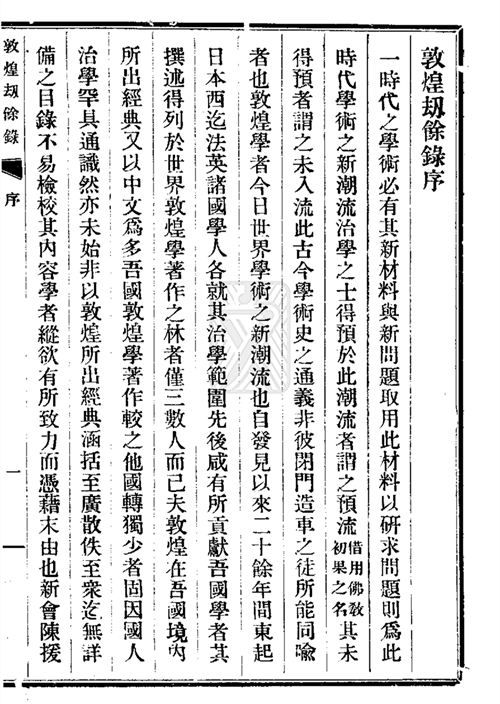 敦煌刼餘錄序
一時代之學術必有其新材料與新問題取用此材料以研求問題則爲此
時代學術之新潮流治學之士得預於此潮流者謂之預流借用佛敎初果之名其未
得預者謂之未入流此古今學術史之通義非彼閉門造車之徒所能同喩
者也敦煌學者今日世界學術之新潮流也自發見以來二十餘年間東起
日本西迄法英諸國學人各就其治學範圍先後咸有所貢獻吾國學者其
撰述得列於世界敦煌學著作之林者僅三數人而已夫敦煌在吾國境內
所出經典又以中文爲多吾國敦煌學著作較之他國轉獨少者固因國人
治學罕具通識然亦未始非以敦煌所出經典涵括至廣散佚至衆迄無詳
備之目錄不易檢校其內容學者縱欲有所致力而憑藉末由也新會陳援
敦煌刼餘錄 序 一